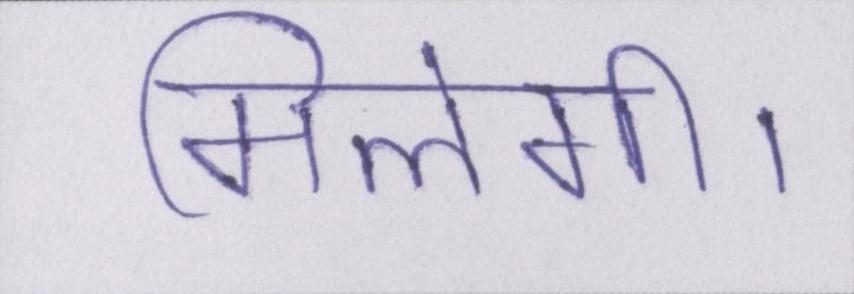 मिलेगी।